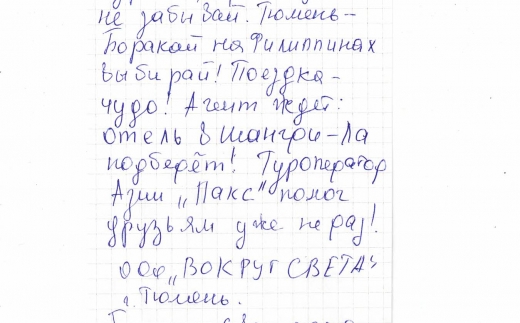 не забывай. Тюмень-
Боракай на Филиппинах
выбирай! Поездка-
чудо! Агент ждёт:
отель в Шангри-Ла
подберёт! Туроператор
Азии „Пакс" помог
друзьям уже не раз!
ООО „ВОКРУГ СВЕТА"
г. Тюмень.